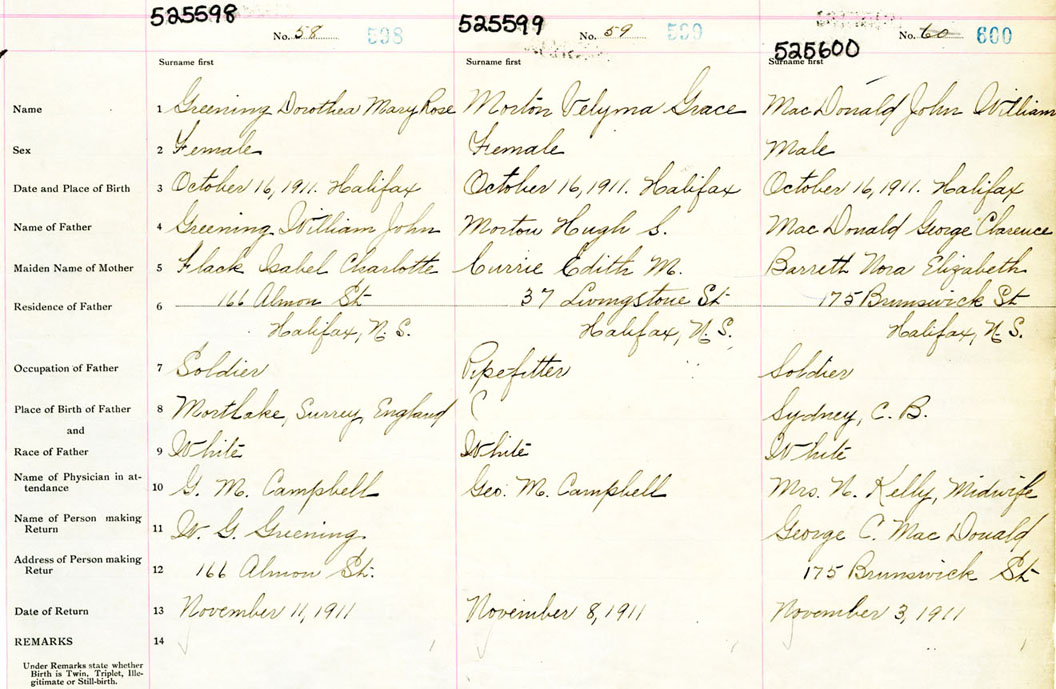 525598
No. 58
598
525599
No. 59
599
525600
No. 60
600
Surname first
Surname first
Surname first
Name 1 Greening Dorothea Mary Rose
Morton Velyma Grace
MacDonald John William
Sex 2 Female
Female
Male
Date and Place of Birth 3 October 16, 1911. Halifax
October 16, 1911. Halifax
October 16, 1911. Halifax
Name of Father 4 Greening William John
Morton Hugh S.
MacDonald George Clarence
Maiden Name of Mother 5 Flack Isabel Charlotte
Currie Edith M.
Barrett Nora Elizabeth
Residence of Father 6 166 Almon St
37 Livingstone St
175 Brunswick St
Halifax, N. S.
Halifax, N. S.
Halifax, N. S.
Occupation of Father 7 Soldier
Pipefitter
Soldier
Place of Birth of Father 8 Mortlake, Surrey, England
Sydney, C. B.
and
Race of Father 9 White
White
White
Name of Physician in at-
tendance 10 G. M. Campbell
Geo. M. Campbell
Mrs. N. Kelly, Midwife
Name of Person making
Return 11 W. G. Greening
George C. MacDonald
Address of Person making
Retur 12 166 Almon St.
175 Brunswick St
Date of Return 13 November 11, 1911
November 8, 1911
November 3, 1911
REMARKS 14
Under Remarks state whether
Birth is Twin, Triplet, Ille-
gitimate or Still-birth.